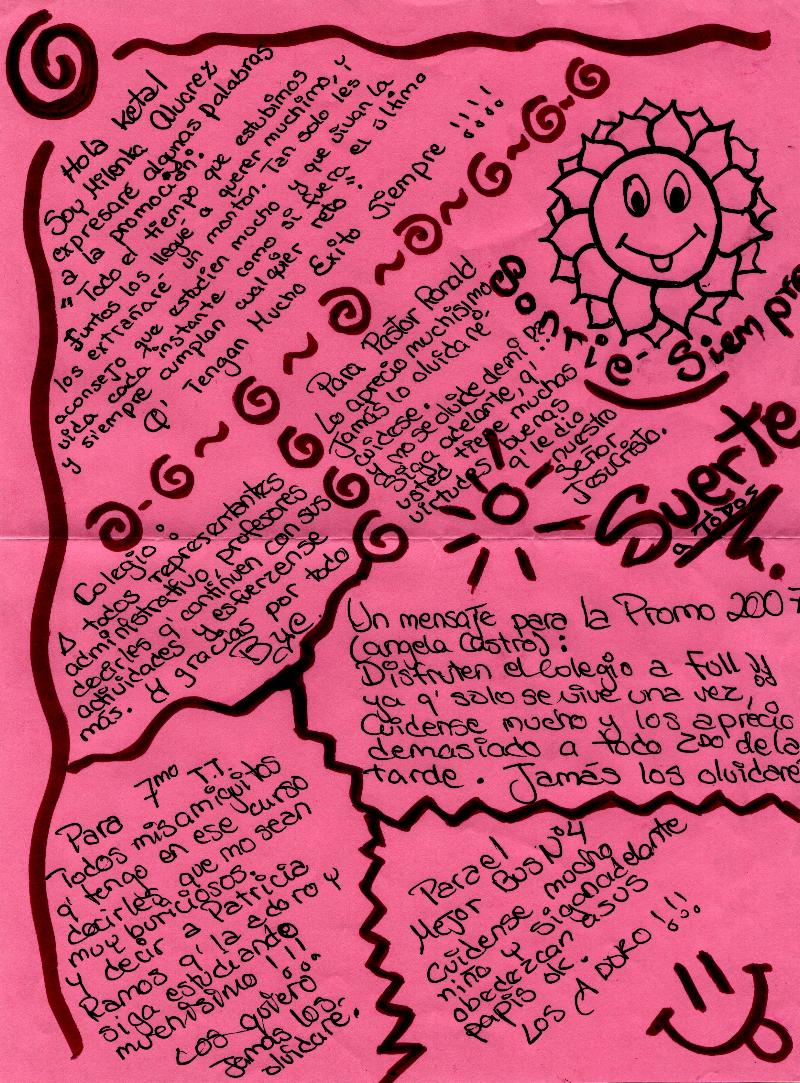 Hola ketal
Soy Milenka Alvarez
expresaré algunas palabras
a la promoción.
" Todo el tiempo que estubimos
Juntos los llegué a querer muchimo, y
los extrañaré un montón. Tan solo les
aconsejo que estudien mucho y que vivan la
vida cada instante como si fuera el último
y siempre cumplan cualquier reto".
Q' Tengan Mucho Exito Siempre !!!!
Sonrie - Siempre
Para Pastor Ronald
Lo aprecio muchisimo
Jamás lo olvidaré.
Cuidese.
y no se olvide de mi ??
Siga adelante, q'
usted tiene muchas
virtudes buenas
q' le dio
nuestro
Señor
Jesucristo.
Suerte
a Todos
Colegio :
A todos representantes
administrativo, profesores
decirles q' continúen con sus
actividades y esfuerzense
más. y gracias por todo
Bye
Un mensaje para la Promo 2007
(angela Castro) :
Disfruten el Colegio a Full !!
ya q' solo se vive una vez,
Cuidense mucho y los aprecio
demasiado a todo 2do de la
tarde. Jamás los olvidaré
Para 7mo T.T.
Todos mis amiguitos
q' tengo en ese curso
decirles que no sean
muy buriciosos.
y decir a Patricia
Ramos q' la adoro y
siga estudiando
muchisimo !!!
Los quiero
Jamás los
olvidaré.
Para el
Mejor Bus N°4
Cuidense mucho
niño y sigan adelante
obedezcan a sus
papis ok.
LOS ADORO !!!